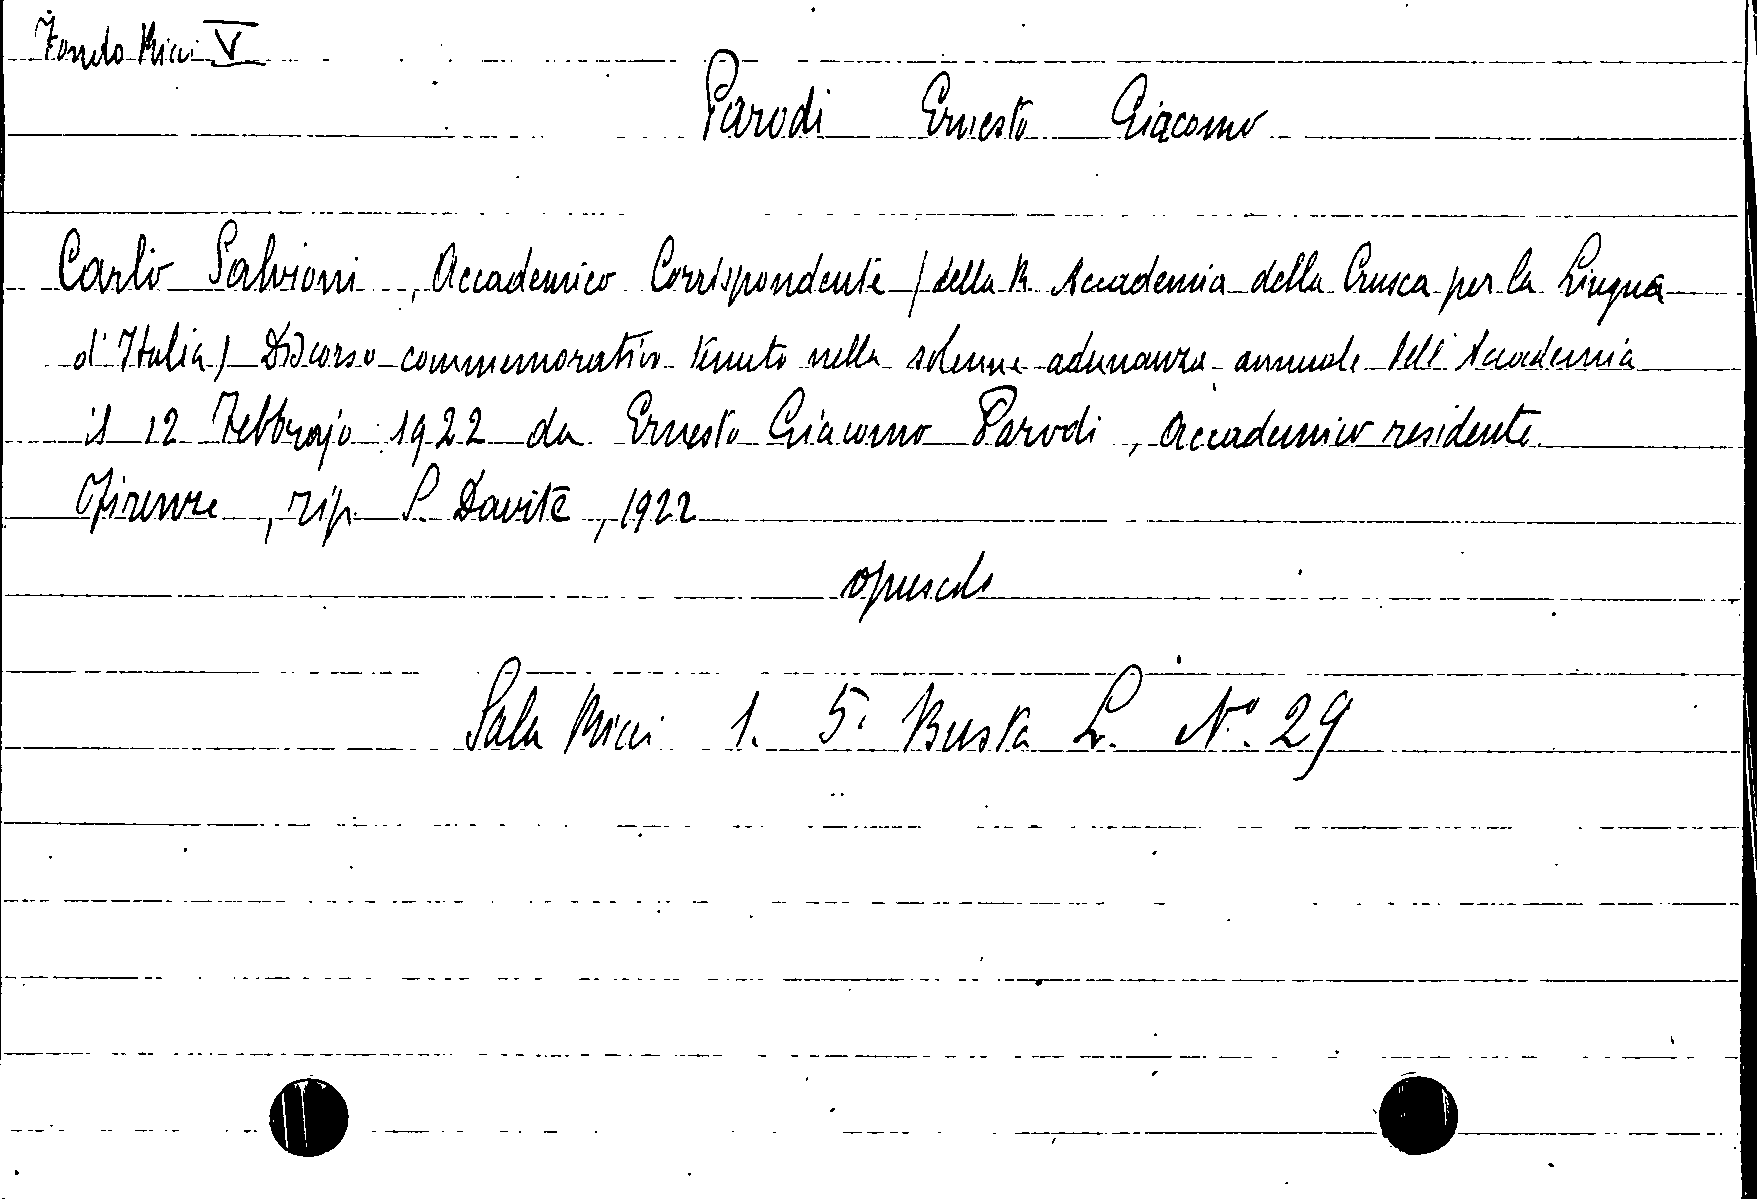 Fondo Ricci V
Parodi Ernesto Giacomo
Carlo Salvioni, Accademico Corrispondente (della R. Accademia della Crusca per la Lingua
d'Italia) Discorso commemorativo tenuto nella solenne adunanza annuale dell'Accademia
il 12 Febbrajo 1922 da Ernesto Giacomo Parodi, Accademico residente
Firenze, tip. S. Davite, 1922
opuscolo
Sala Ricci 1. 5. Busta L. N.° 29